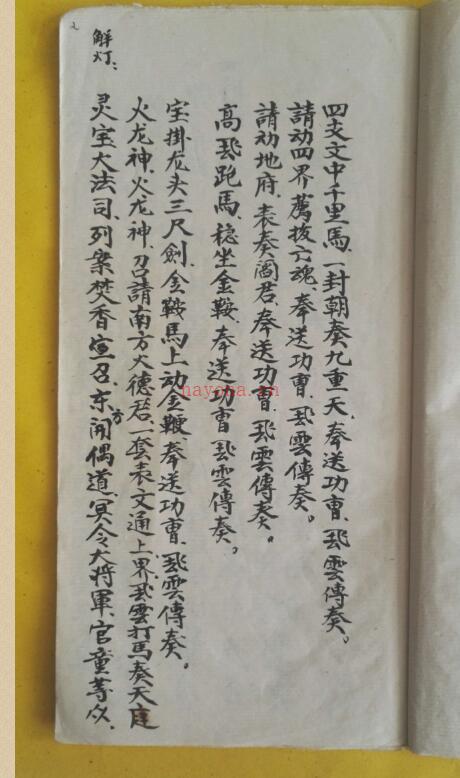 四支文中千里馬、一封朝奏九重天、奉送功曹、飛雲傳奏。
請功四界薦拔亡魂、奉送功曹、飛雲傳奏。
請功地府、表奏阎君、奉送功曹、飛雲傳奏。
高飛跑馬、稳坐金鞍、奉送功曹、飛雲傳奏。
宝掛龙头三尺劍、金鞍馬上动金鞭、奉送功曹、飛雲傳奏。
火龙神、火龙神、召請南方火德君、一套表文通上界、飛雲打馬奏天庭
灵宝大法司、列案焚香宣召、东方开偶道、冥令大将軍、官童等众、
解灯：
2
nayona.cn